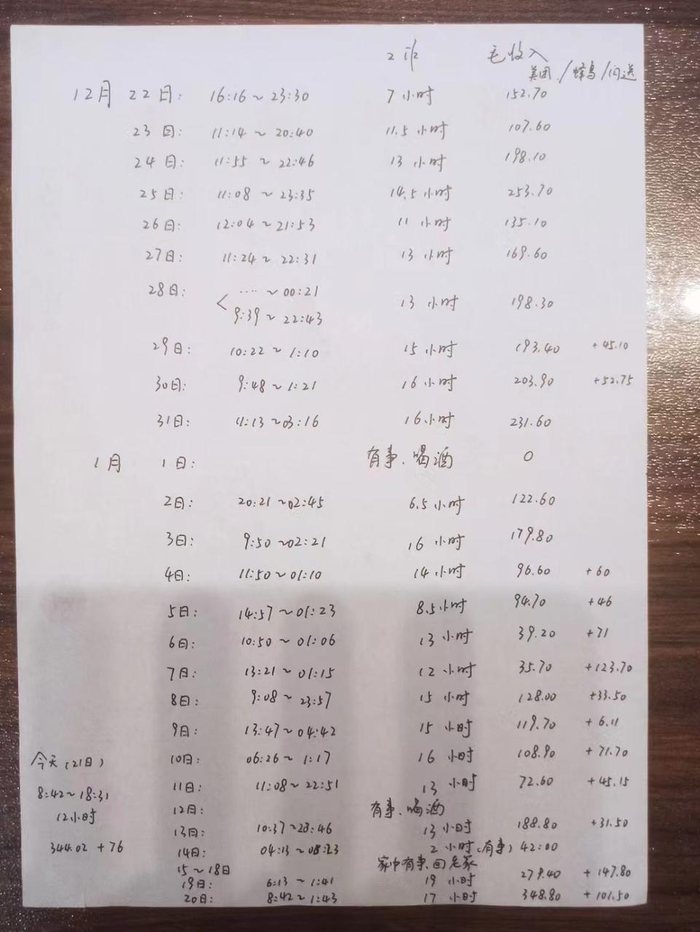 毛收入
美团/蜂鸟/闪送
12月 22日: 16:16~23:30 7小时 152.70
23日: 11:14~20:40 11.5小时 107.60
24日: 11:55~22:46 13小时 198.10
25日: 11:08~23:35 14.5小时 253.70
26日: 12:04~21:53 11小时 135.10
27日: 11:24~22:31 13小时 169.60
28日: ····~00:21
9:39~22:43 13小时 198.30
29日: 10:22~1:10 15小时 193.40 +45.10
30日: 9:48~1:21 16小时 203.90 +52.75
31日: 11:13~03:16 16小时 231.60
1月 1日: 有事、喝酒 0
2日: 20:21~02:45 6.5小时 122.60
3日: 9:50~02:21 16小时 179.80
4日: 11:50~01:10 14小时 96.60 +60
5日: 14:57~01:23 8.5小时 94.70 +46
6日: 10:50~01:06 13小时 39.20 +71
7日: 13:21~01:15 12小时 35.70 +123.70
8日: 9:08~23:57 15小时 128.00 +33.50
9日: 13:47~04:42 15小时 119.70 +6.11
10日: 06:26~1:17 16小时 108.90 +71.70
11日: 11:08~22:51 13小时 72.60 +45.15
12日: 有事、喝酒
13日: 10:37~23:46 13小时 188.80 +31.50
14日: 04:13~08:23 2小时(有事) 42:00
15~18日 家中有事、回老家
19日: 6:13~1:41 19小时 279.40 +147.80
20日: 8:42~1:43 17小时 348.80 +101.50
今天(21日)
8:42~18:31
12小时
344.02+76